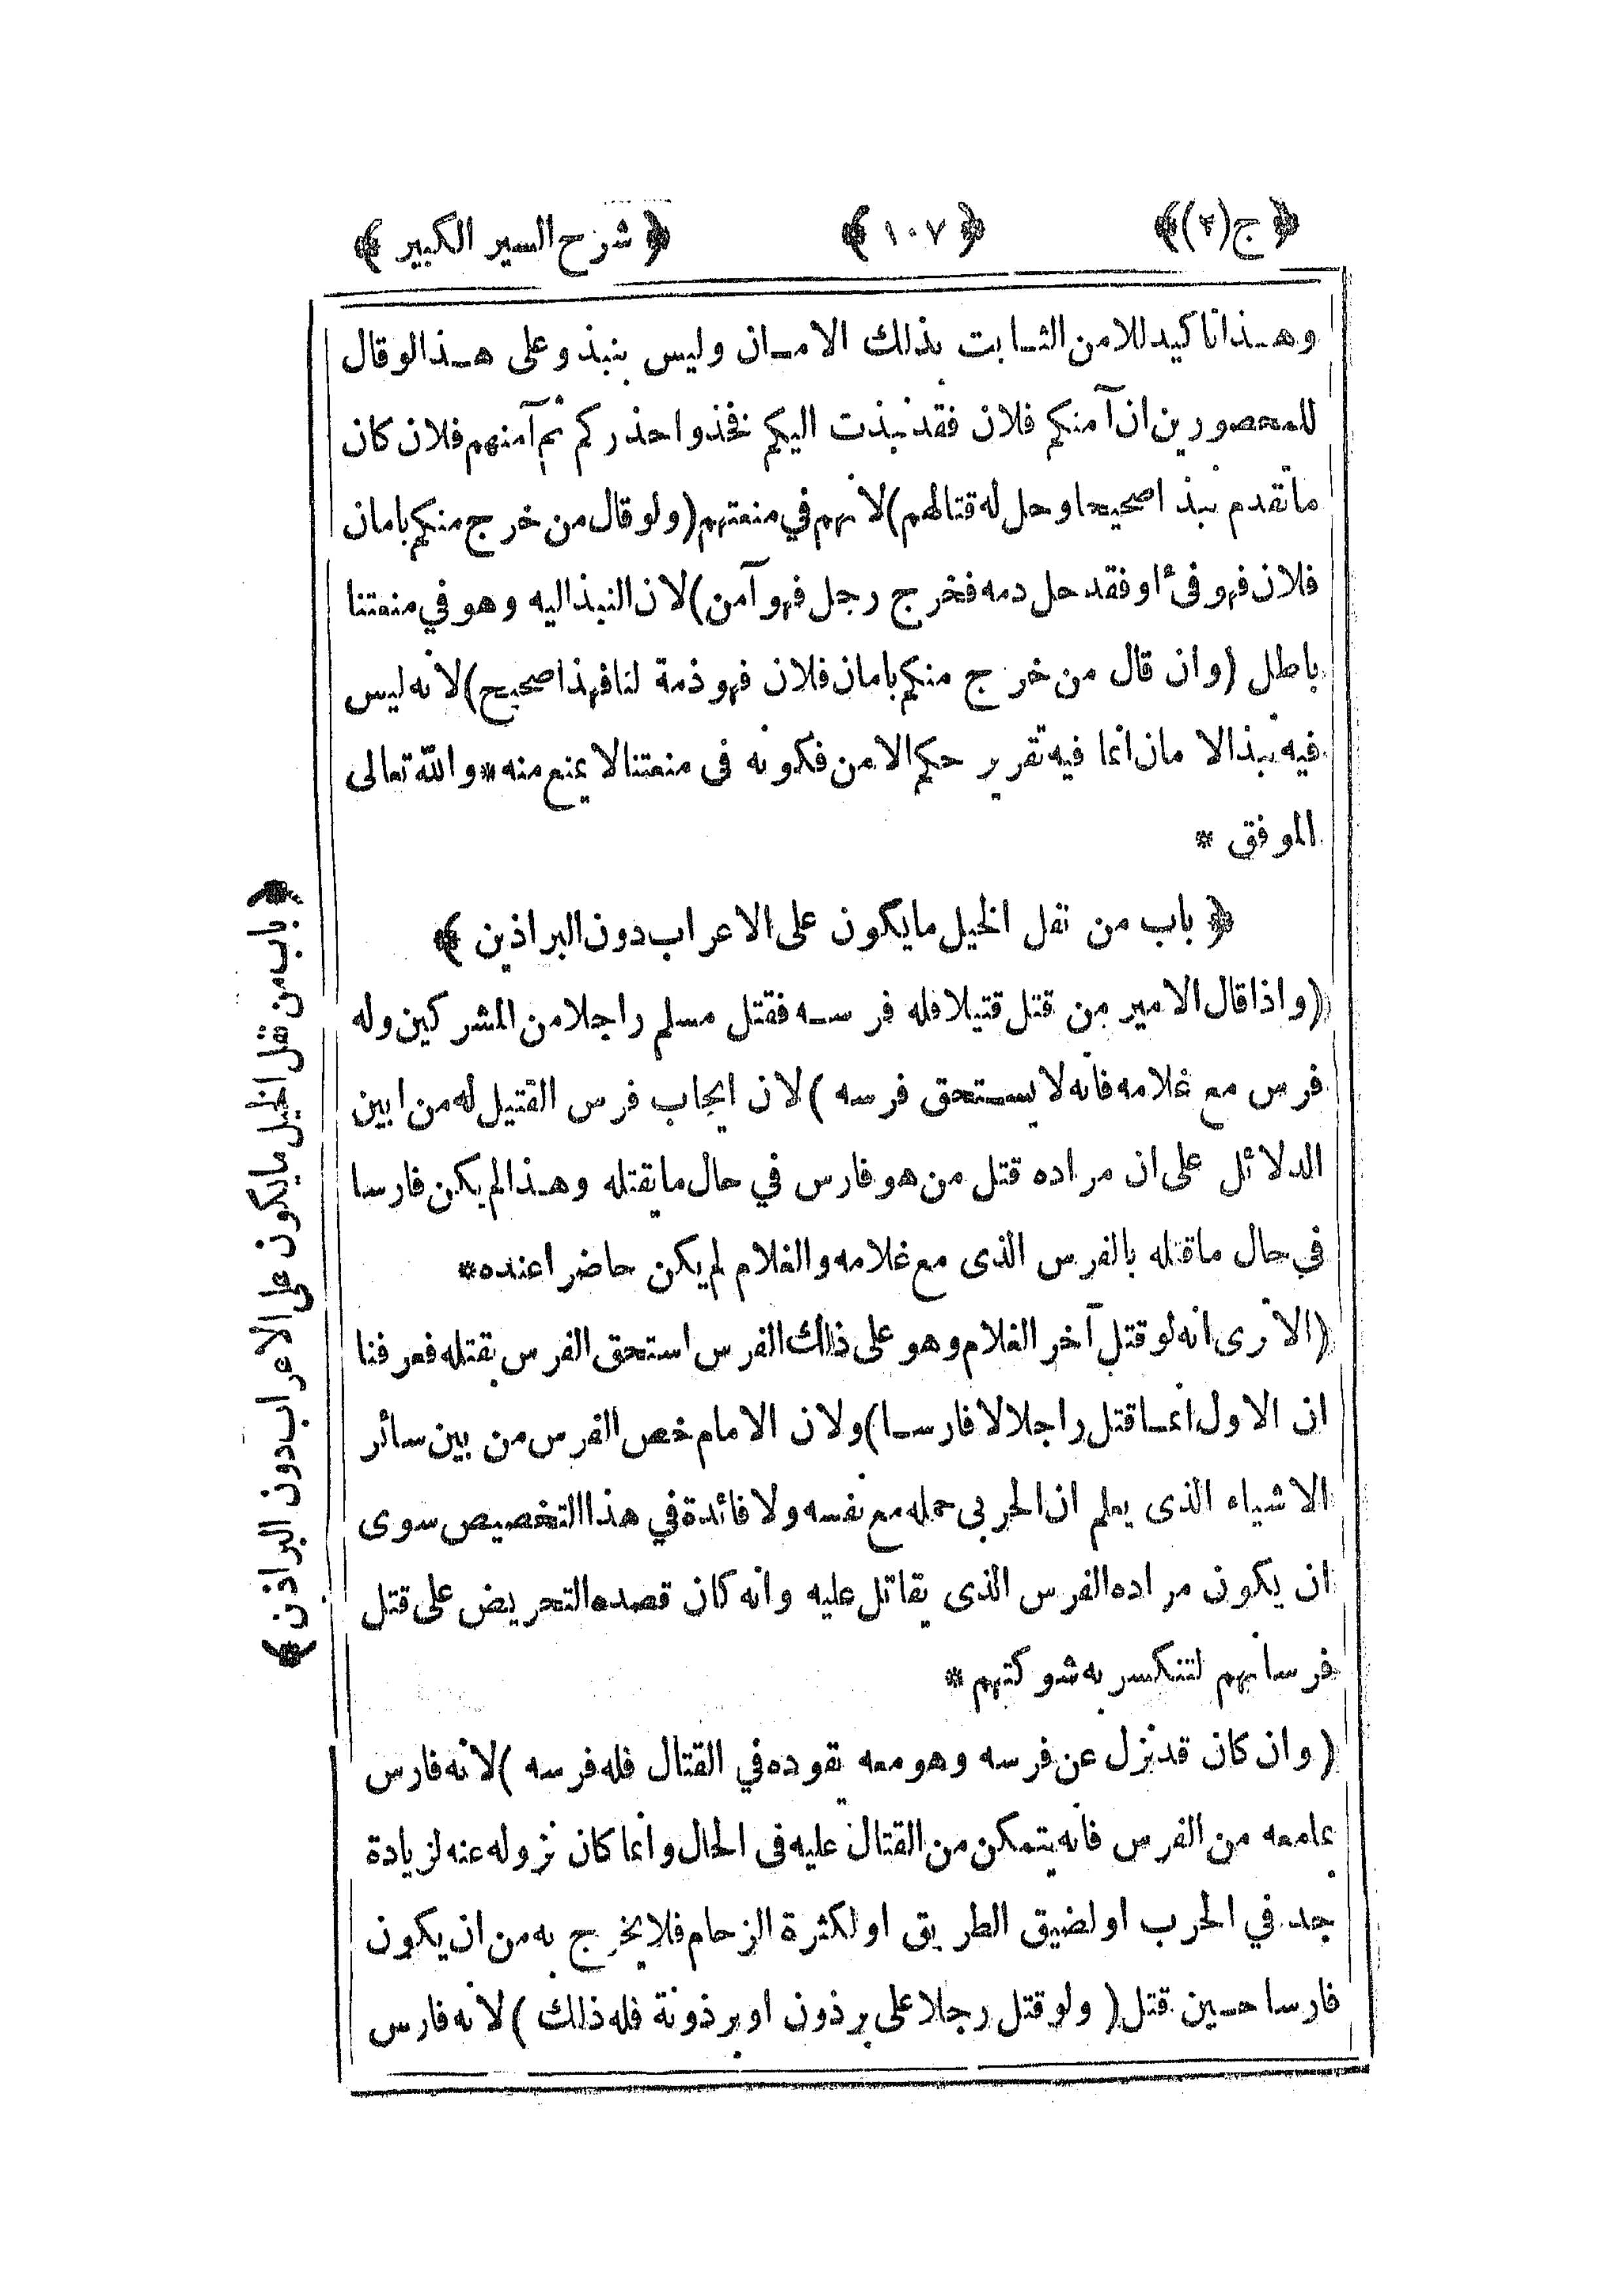 ﴿ ج (٢) ﴾ ﴿ ١٠٧ ﴾ ﴿ شرح السير الكبير ﴾
وهـذا تاكيد للامن الثـابت بذلك الامـان وليس بنبذ وعلى هـذا لو قال
للمحصورين ان آمنكم فلان فقد نبذت اليكم فخذوا حذركم ثم آمنهم فلان كان
ما تقدم نبذا صحيحا وحل له قتالهم) لانهم في منعتهم (ولو قال من خرج منكم بامان
فلان فهو فئ او فقد حل دمه فخرج رجل فهو آمن) لان النبذ اليه وهو في منعتنا
باطل (وان قال من خرج منكم بامان فلان فهو ذمة لنا فهذا صحيح) لانه ليس
فيه نبذ الامان انما فيه تقرير حكم الامن فكونه في منعتنا لا يمنع منه * والله تعالى
الموفق *
﴿ باب من نفل الخيل ما يكون على الاعراب دون البراذين ﴾
(واذا قال الامير من قتل قتيلا فله فرسـه فقتل مسلم راجلا من المشركين وله
فرس مع غلامه فانه لا يسـتحق فرسه) لان ايجاب فرس القتيل له من ابين
الدلائل على ان مراده قتل من هو فارس في حال ما يقتله وهـذا لم يكن فارسا
في حال ما قتله بالفرس الذى مع غلامه والغلام لم يكن حاضرا عنده *
(الا ترى انه لو قتل آخر الغلام وهو على ذلك الفرس استحق الفرس بقتله فعرفنا
ان الاول انمـا قتل راجلا لا فارسـا) ولان الامام خص الفرس من بين سائر
الاشياء الذى يعلم ان الحربى حمله مع نفسه ولا فائدة في هذا التخصيص سوى
ان يكون مراده الفرس الذى يقاتل عليه وانه كان قصده التحريض على قتل
فرسانهم لتنكسر به شوكتهم *
(وان كان قد نزل عن فرسه وهو معه يقوده في القتال فله فرسه) لانه فارس
بما معه من الفرس فانه يتمكن من القتال عليه فى الحال وانما كان نزوله عنه لزيادة
جد في الحرب او لضيق الطريق او لكثرة الزحام فلا يخرج به من ان يكون
فارسا حـين قتل (ولو قتل رجلا على برذون او برذونة فله ذلك) لانه فارس
﴿ باب من نفل الخيل ما يكون على الاعراب دون البراذين ﴾